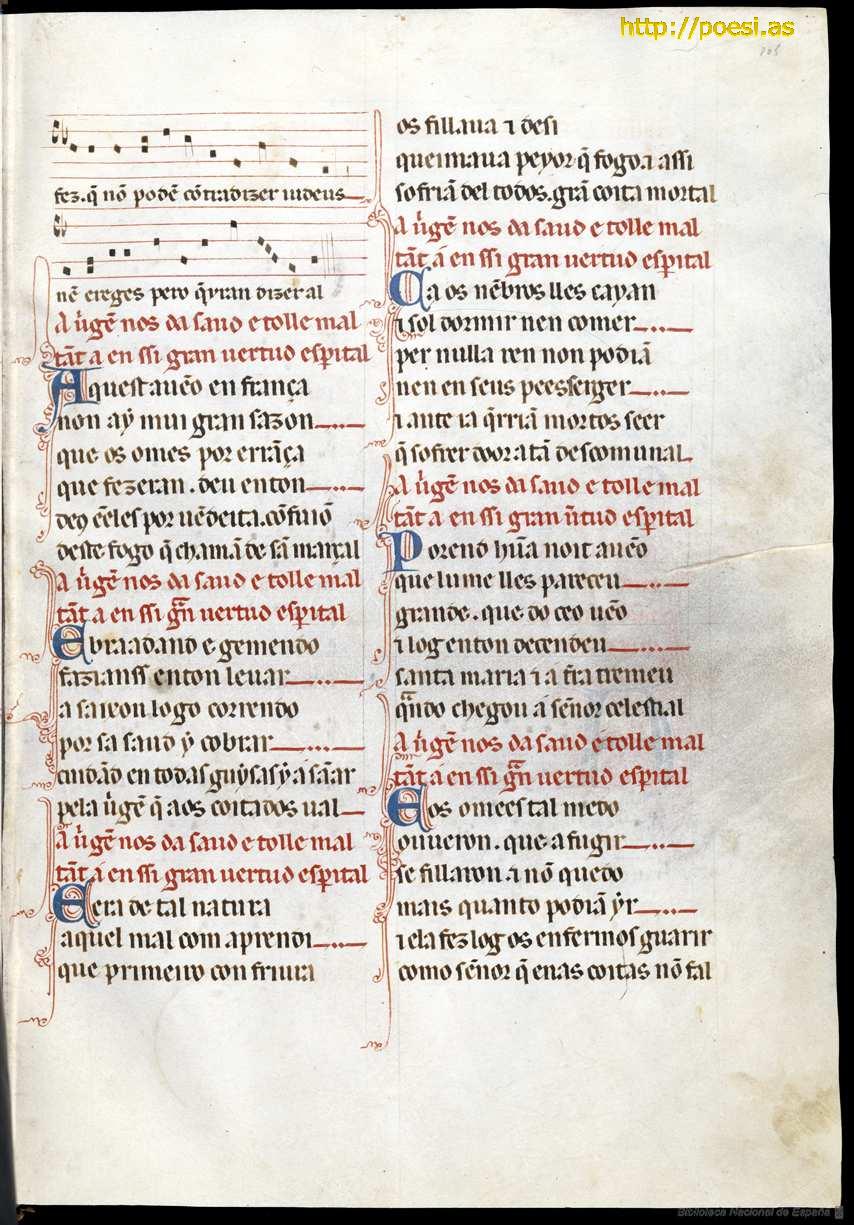 http://poesi.as
fez. q̄ nō podē cōtradizer iudeus
nē ereges pero q̄yran dizer al
A ṽgē nos da saud e tolle mal
tāt a en ssi gran uertud esp̃ital
Aquest auẽo en frança
non aẏ mui gran sazon
que os omes por errãça
que fezeran. deu enton
deꝯ ẽeles por uẽdeita. cōfuiō
deste fogo q̄ chamã de sã marçal
A ṽgē nos da saud e tolle mal
tāt a en ssi grã̃n uertud esp̃ital
E braadand e gemendo
fazianss enton leuar
a saixon logo correndo
por sa saud ẏ cobrar
cuidãd en todas guẏsas ẏ a sãar
pela ṽgē q̄ aos coitados ual
A ṽgē nos da saud e tolle mal
tāt a en ssi gran uertud esp̃ital
E era de tal natura
aquel mal com aprendi
que primeiro con friura
os fillaua ⁊ desi
queimaua peyor q̄ fogo. a assi
sofriã del todos. grã coita mortal
A ṽgē nos da saud e tolle mal
tāt a en ssi gran uertud esp̃ital
Ca os nẽbros lles cayan
⁊ sol dormir nen comer
per nulla ren non podiã
nen en seus pees seiger
⁊ ante ia q̄rriã mortos seer
q̄ sofrer door atã descomunal
A ṽgē nos da saud e tolle mal
tāt a en ssi gran ũtud esp̃ital
Porend hũa noit auẽo
que lume lles pareceu
grande. que do ceo uẽo
⁊ log enton decendeu
santa maria ⁊ a t̃ra tremeu
q̃ndo chegou a señor celestial
A ṽgē nos da saud e tolle mal
tāt a en ssi grã̃n uertud esp̃ital
E os omees tal medo
ouueron. que a fugir
se fillaron ⁊ nō quedo
mais quanto podiã ẏr
⁊ ela fez log os enfermos guarir
como señor q̄ enas coitas nō fal
Biblioteca Nacional de España